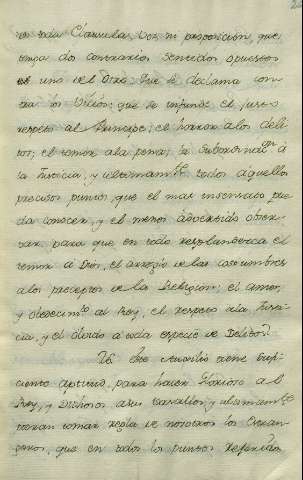 en toda Clausula, Voz, ni proposicion, que
tenga dos contrarios sentidos opuestos
uno del Otro: Que se declama con
tra los Vicios: que se infunde el justo
respeto al Principe; el horror a los deli
tos; el temor a la pena; la subordinac.on a
la Justicia; y ultimam.te todos aquellos
precisos puntos, que el mas insensato pue
da conocer, y el menos advertido obser
var, para que en todo resplandezca el
temor a Dios, el arreglo de las costumbres
a los preceptos de la Religion; el amor,
y obedecim.to al Rey, el respeto a la Justi
cia, y el olvido a toda especie de Delitos.
este tiene sufi
ciente aptitud, para hacer Glorioso al
Rey, y Dichosos a sus Vasallos; y ultimam.te
podran tomar regla de nosotros los Estran
geros, que en todos los puntos referidos